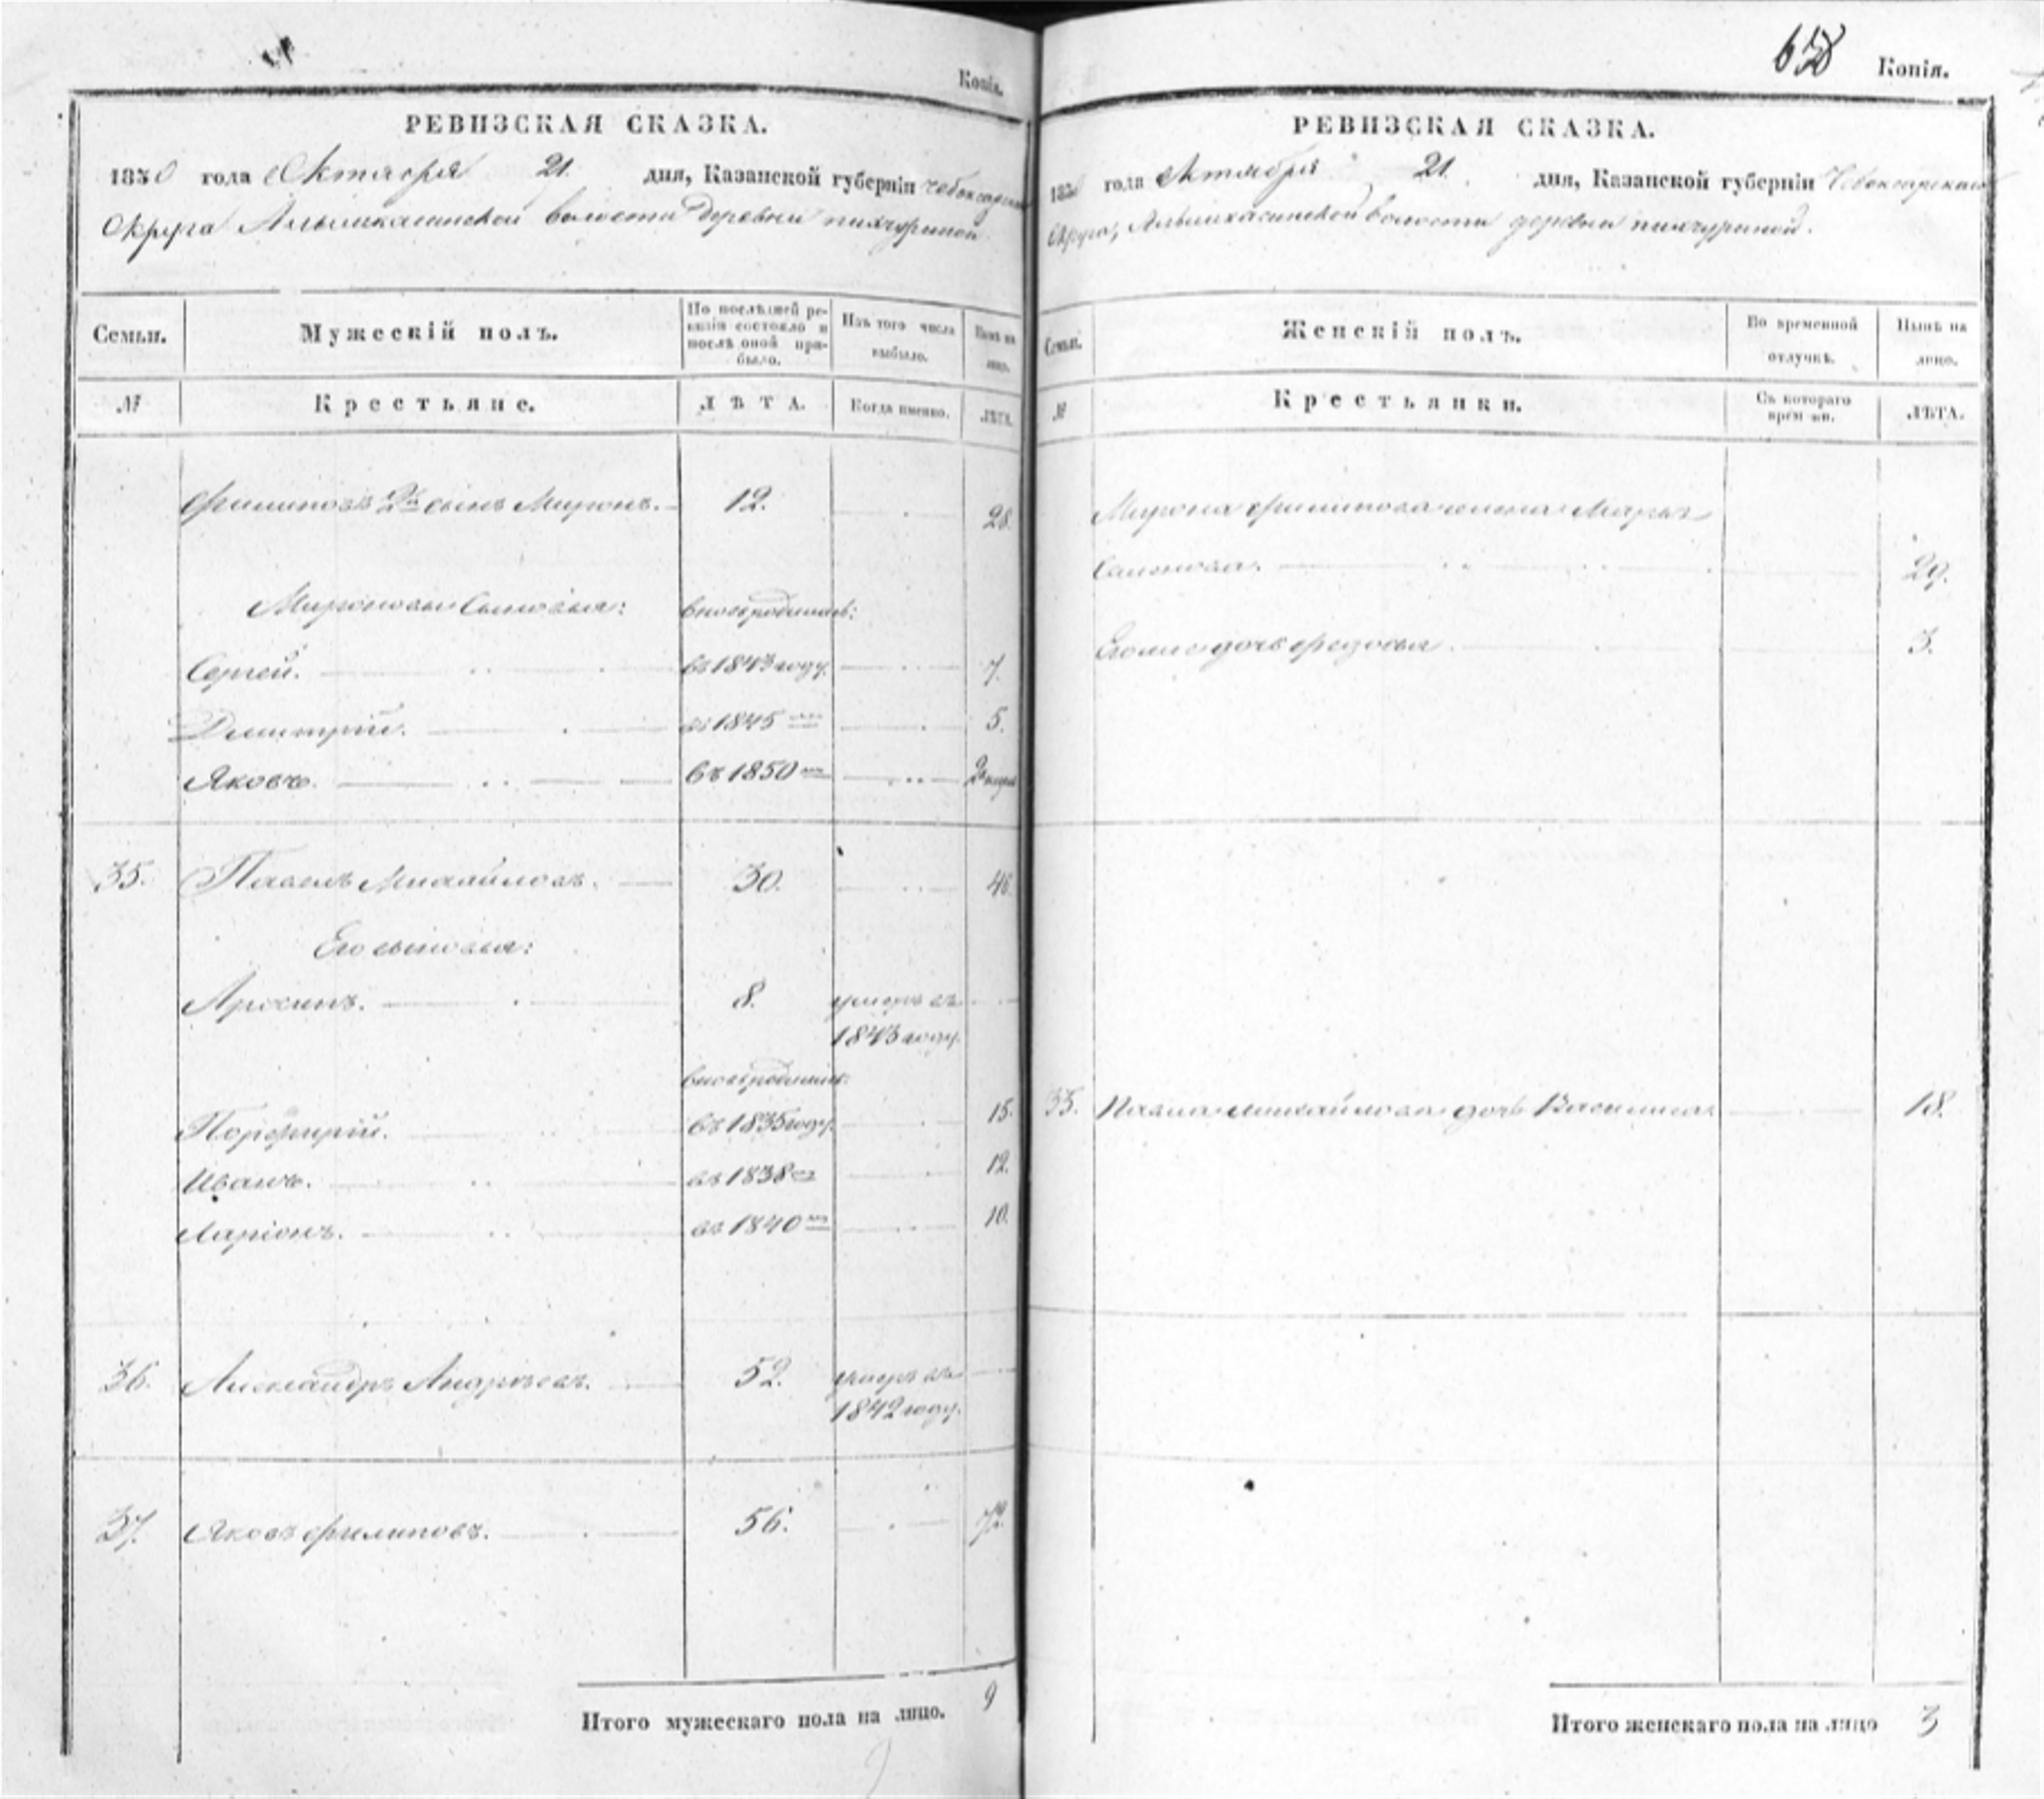 Копія.
РЕВИЗСКАЯ СКАЗКА.
1850 года Октября 21. дня, Казанской губерніи Чебоксарскаго
Округа Алымкасинской волости Деревни пихчуриной
Семьи. Мужескій полъ. По послѣдней ревизіи состояло и послѣ оной прибыло. Изъ того числа выбыло. Нынѣ на лицо.
№ Крестьяне. ЛѢТА. Когда именно. ЛѢТА.
Филиповъ 2й сынъ Миронъ. 12. 28.
Мироновы Сыновья: вновьродились:
Сергей. въ 1843 году. 7.
Дмитрій. въ 1845 5.
Яковъ. въ 1850 2 недел
35. Павелъ Михайловъ. 30. 46.
Его сыновья:
8. умеръ въ
1843 году.
вновьродились:
Порфирій. въ 1835 году. 15.
Иванъ. въ 1838 12.
Ларіонъ. въ 1840 10.
36. Александръ Андреевъ. 52. умеръ въ
1842 году.
37. Яковъ Филиповъ. 56. 72.
Итого мужескаго пола на лицо. 9
658 Копія.
РЕВИЗСКАЯ СКАЗКА.
1850 года Октября 21. дня, Казанской губерніи Чебоксарскаго
Округа, Алымкасинской волости деревни пихчуриной.
Семьи. Женскій полъ. Во временной отлучкѣ. Нынѣ на лицо.
№ Крестьянки. Съ котораго времени. ЛѢТА.
Мирона Филипова жена Марья
29.
Его дочь Федосья. 3.
35. Павла Михайлова дочь Василиса 18.
Итого женскаго пола на лицо 3